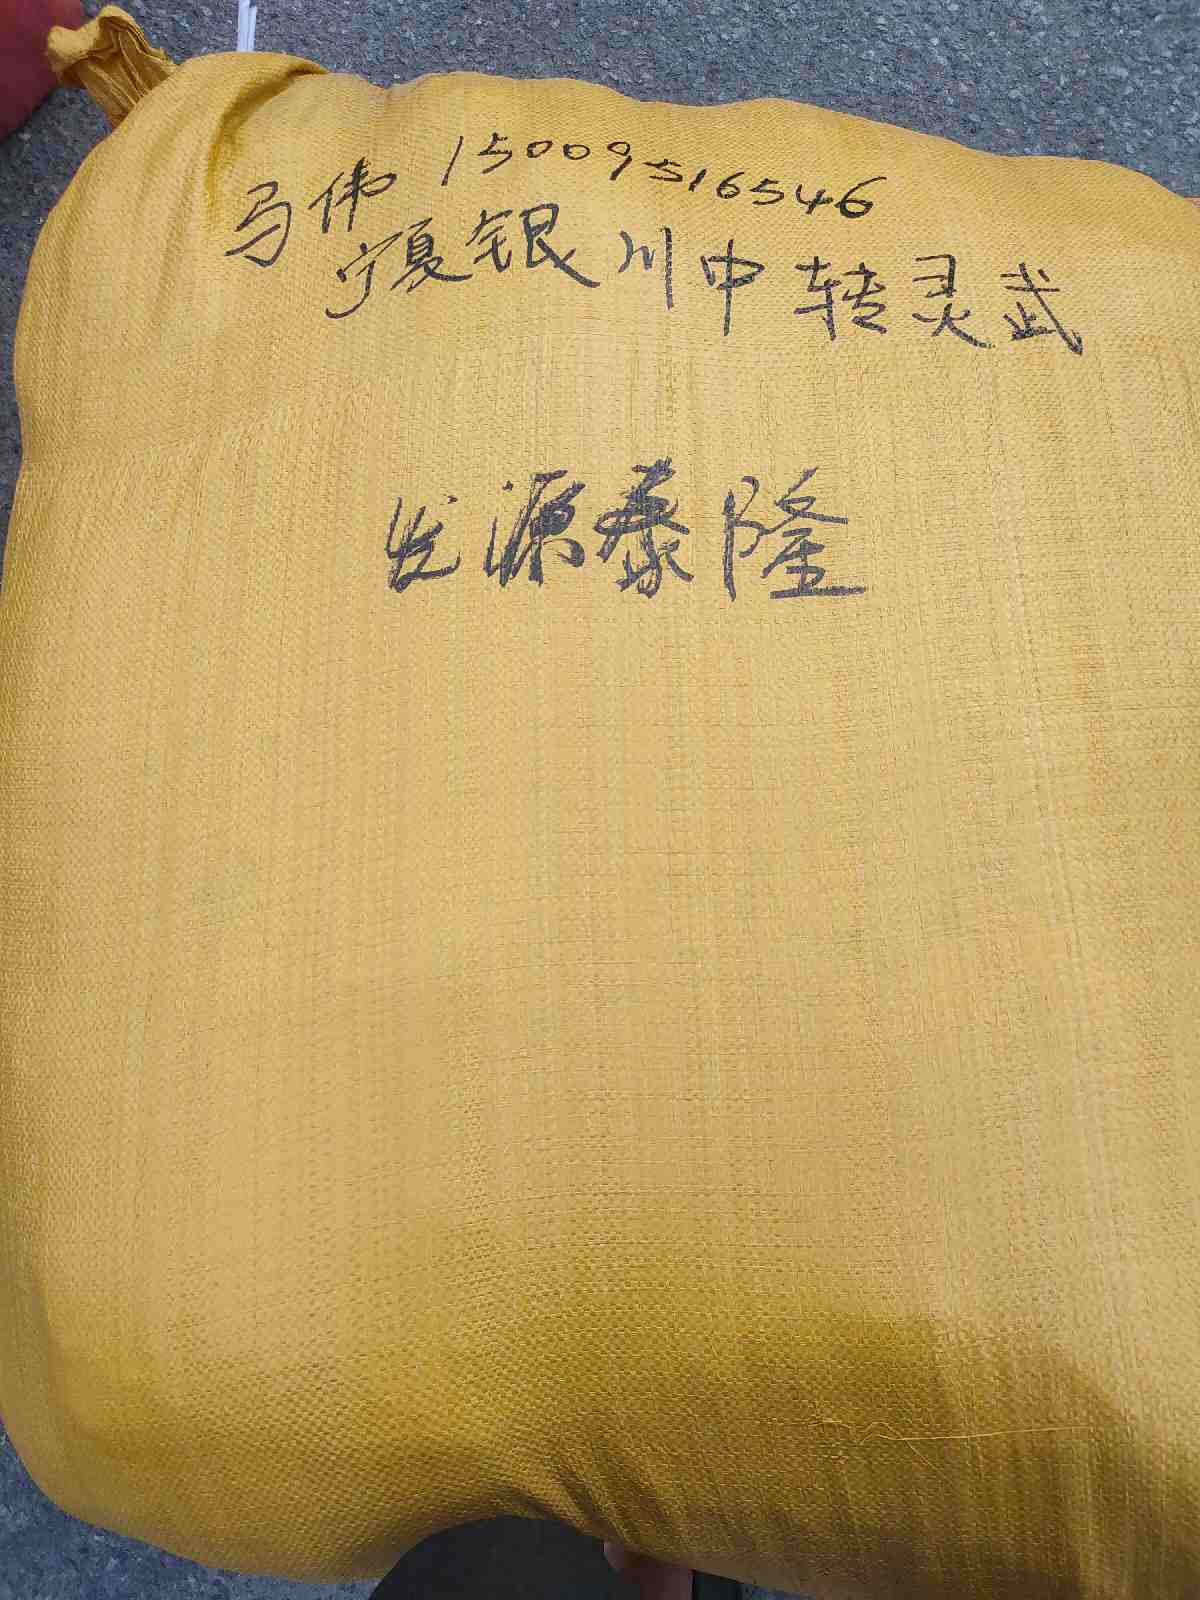 马伟 15009516546
宁夏银川中转灵武
发源泰隆